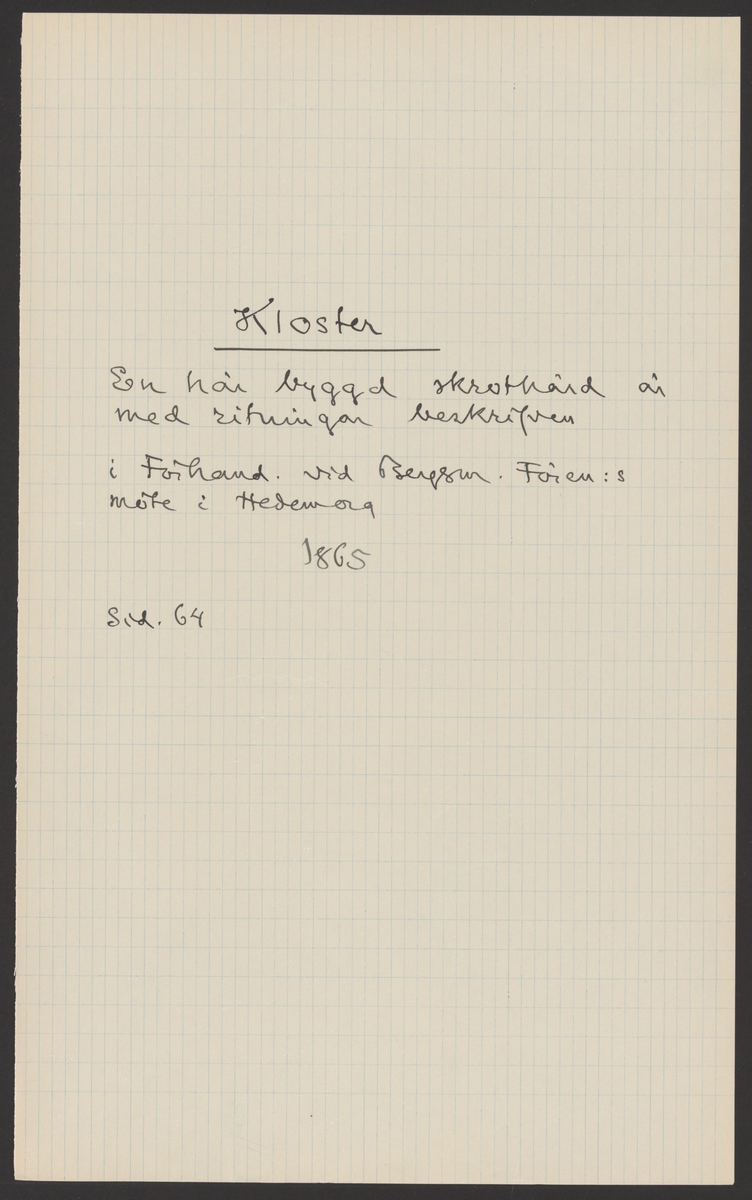 Kloster
En här byggd skrothärd är
med ritningar beskrifven
i Förhand. vid Bergsm. Fören:s
möte i Hedemora
1865
Sid. 64